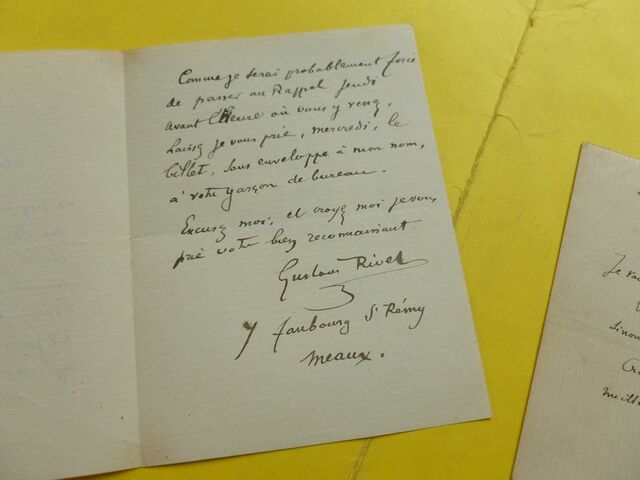 Comme je serai probablement forcé
de passer au Rappel jeudi
avant l'heure où vous y venez,
Laissez je vous prie, mercredi, le
billet, sous enveloppe à mon nom,
à votre garçon de bureau.
Excusez moi, et croyez moi je vous
prie votre bien reconnaissant
Gustave Rivet
7 faubourg St Rémy
Meaux.
Je